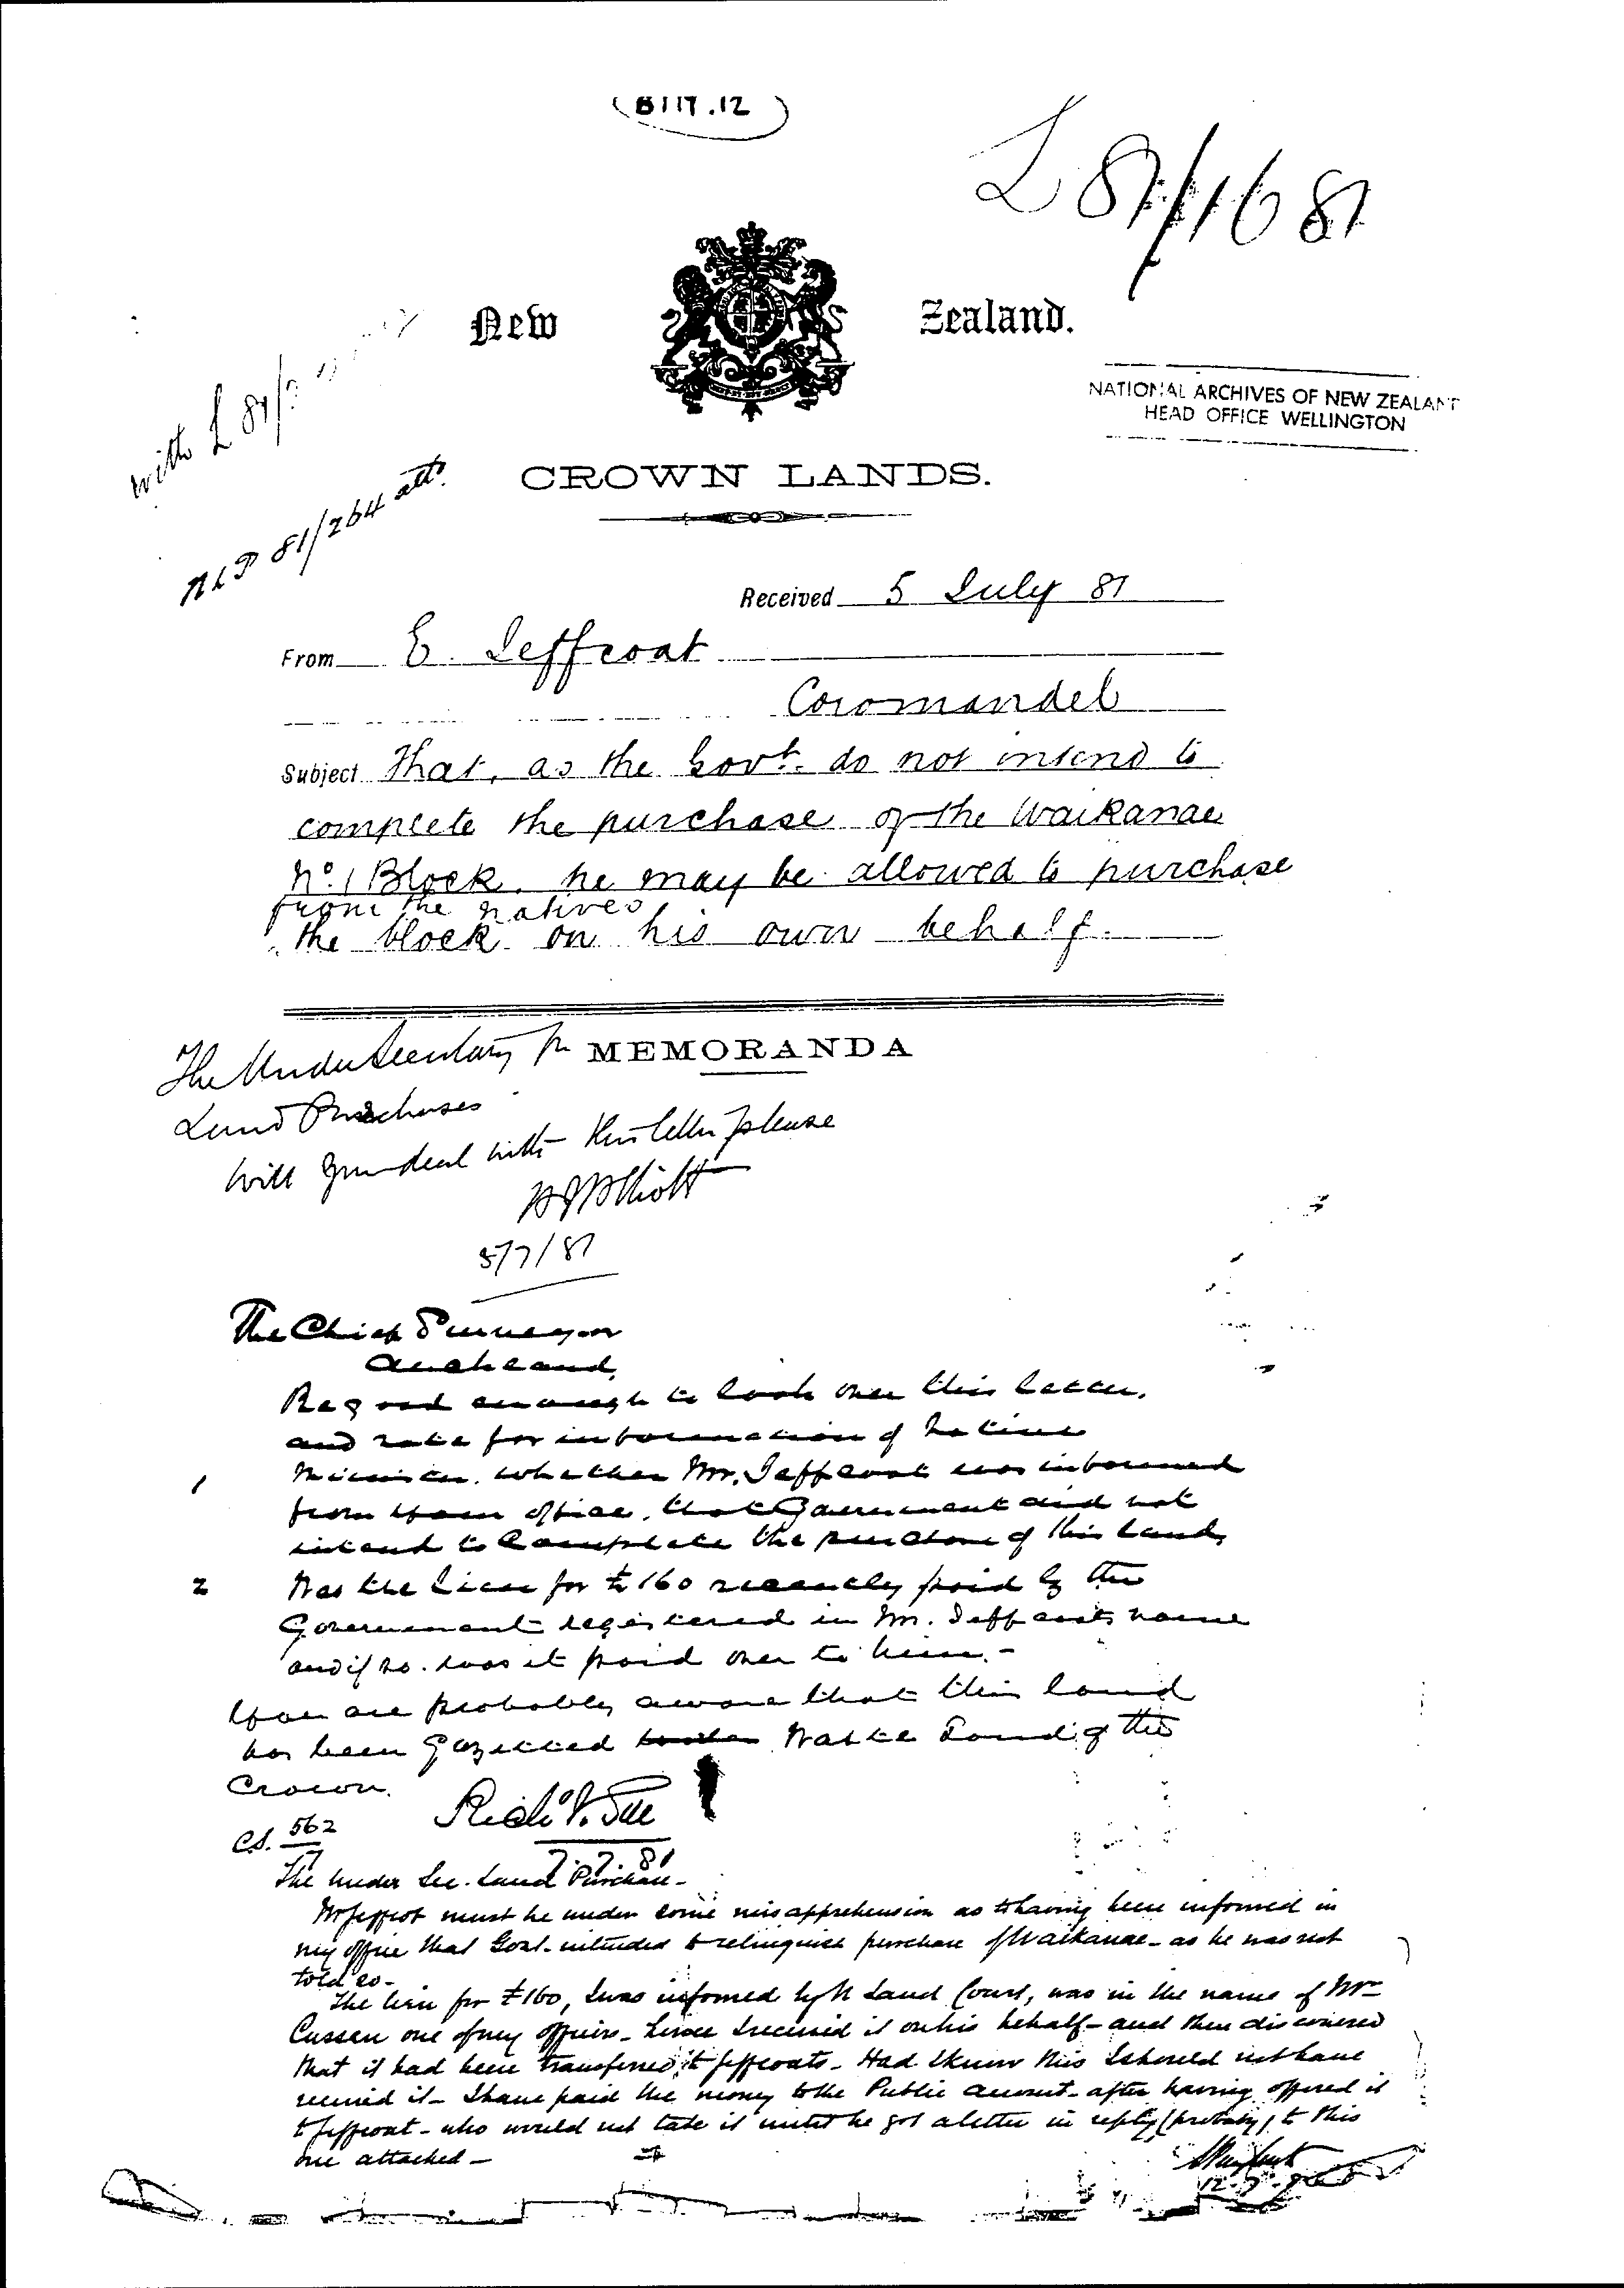 (8117.12)
L 81/1681
New Zealand.
NATIONAL ARCHIVES OF NEW ZEALAND
HEAD OFFICE WELLINGTON
with L 81/
NLP 81/264 attd
CROWN LANDS.
Received 5 July 81
From E. Jeffcoat
Coromandel
Subject That, as the Govt. do not intend to
complete the purchase of the Waikanae
No. 1 Block. he may be allowed to purchase
from the natives
the block on his own behalf.
MEMORANDA
The Under Secretary for
Land Purchases
Will you deal with this letter please
5/7/81
The Chief Surveyor
Auckland.
Be good enough to look over this letter,
and state for information of Native
1 Minister. whether Mr. Jeffcoat was informed
from your office, that Government did not
intend to complete the purchase of this land,
2 Was the lien for £160 recently paid by the
Government registered in Mr. Jeffcoats name
and if so. was it paid over to him.-
You are probably aware that this land
has been gazetted Waste Land of the
Crown.
7.7.81
C.S. 562
The Under Sec. Land Purchase-
Mr Jeffcoat must be under some misapprehension as to having been informed in
my office that Govt. intended to relinquish purchase of Waikanae - as he was not
told so-
The lien for £160, I was informed by N Land Court, was in the name of Mr
Cussen one of my officers - hence I received it on his behalf - and then discovered
that it had been transferred to Jeffcoats - Had I known this I should not have
received it - I have paid the money to the Public Account - after having offered it
to Jeffcoat - who would not take it until he got a letter in reply (probably) to this
one attached -